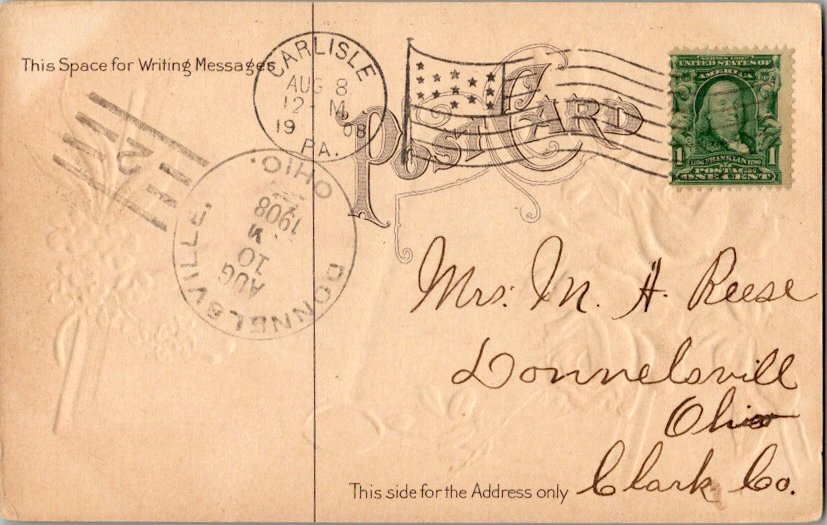 This Space for Writing Messages
CARLISLE
AUG 8
12-M
19 08
PA.
POST CARD
UNITED STATES OF
AMERICA
1 1
POSTAGE
ONE CENT
2
DONNELSVILLE, OHIO.
AUG
10
M
1908
Mrs. M. H. Reese
Donnelsvill
Ohio
Clark Co.
This side for the Address only